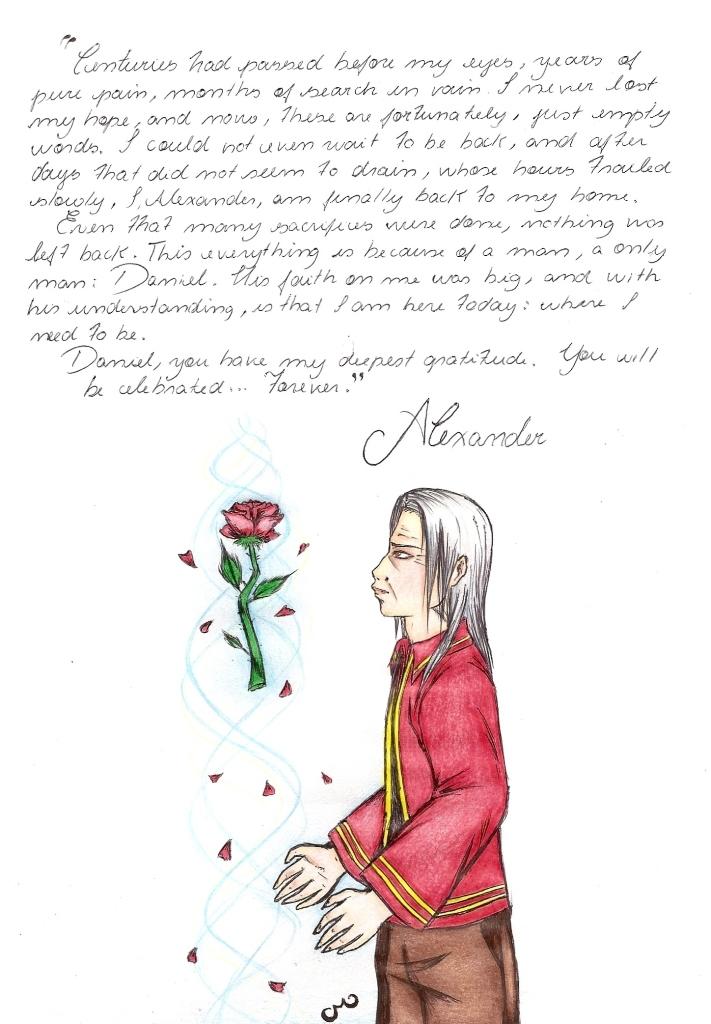 "Centuries had passed before my eyes, years of
pure pain, months of search in vain. I never lost
my hope, and now, these are fortunately, just empty
words. I could not even wait to be back, and after
days that did not seem to drain, whose hours trailed
slowly, I, Alexander, am finally back to my home.
Even that many sacrifices were done, nothing was
left back. This everything is because of a man, a only
man: Daniel. His faith on me was big, and with
his understanding, is that I am here today: where I
need to be.
Daniel, you have my deepest gratitude. You will
be celebrated... Forever."
Alexander